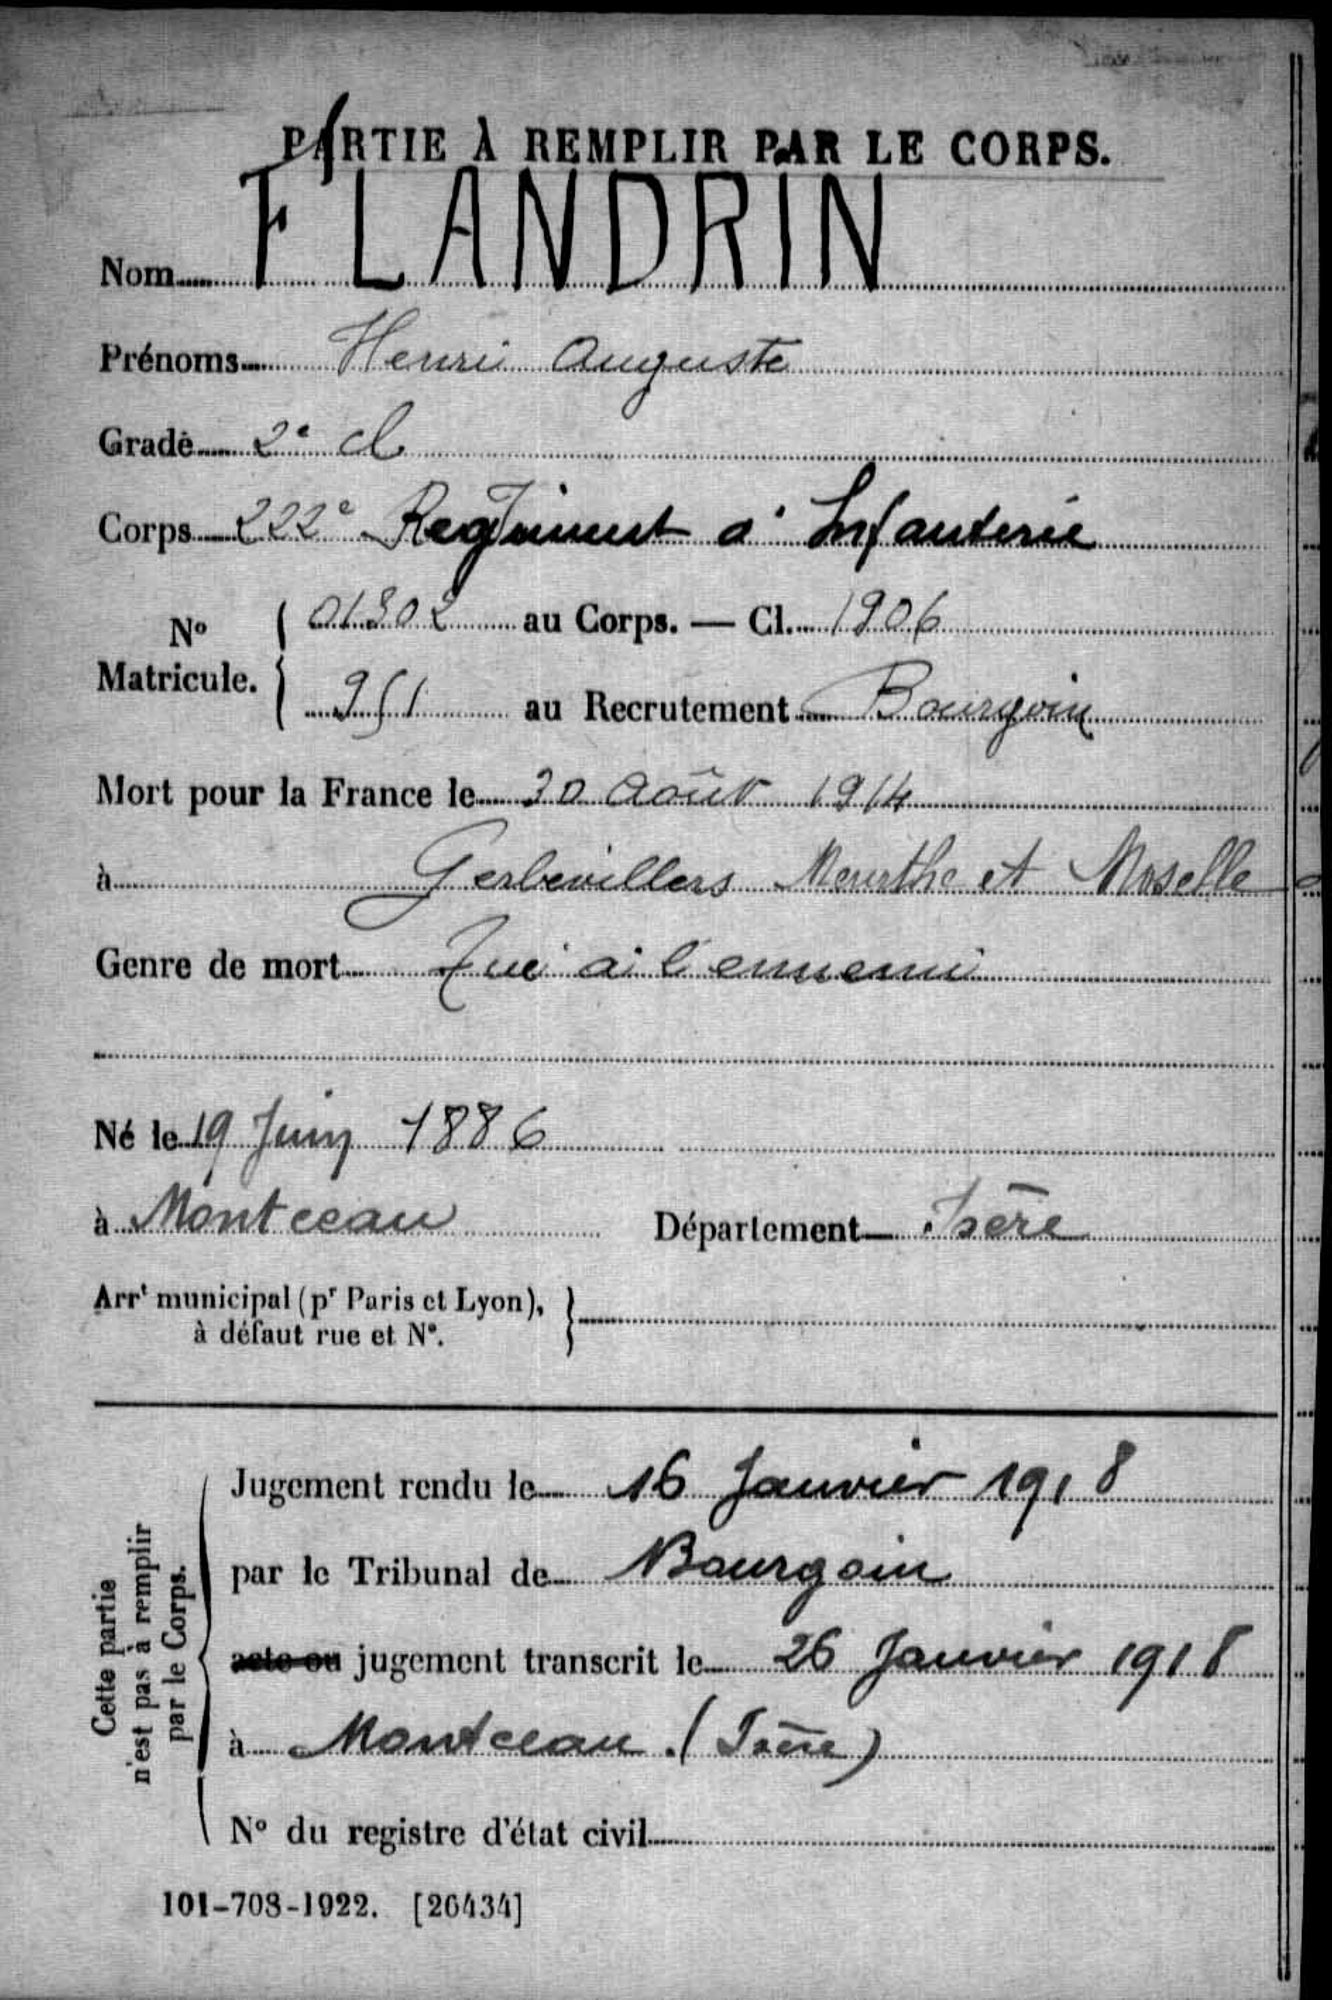 PARTIE À REMPLIR PAR LE CORPS.
Nom FLANDRIN
Prénoms Henri Auguste
Grade 2e cl
Corps 222e Regiment d'Infanterie
No Matricule. { 01302 au Corps. — Cl. 1906
951 au Recrutement Bourgoin
Mort pour la France le 30 Août 1914
à Gerbevillers Meurthe et Moselle
Genre de mort Tué à l'ennemi
Né le 19 Juin 1886
à Montceau Département Isère
Arrt municipal (pr Paris et Lyon),
à défaut rue et No.
Cette partie
n'est pas à remplir
par le Corps.
Jugement rendu le 16 Janvier 1918
par le Tribunal de Bourgoin
acte ou jugement transcrit le 26 Janvier 1918
à Montceau (Isère)
No du registre d'état civil
101-708-1922. [26434]